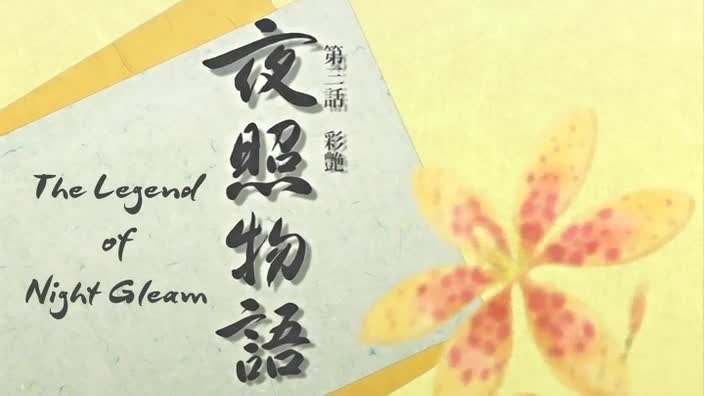 第三話 彩艶
夜照物語
The Legend
of
Night Gleam